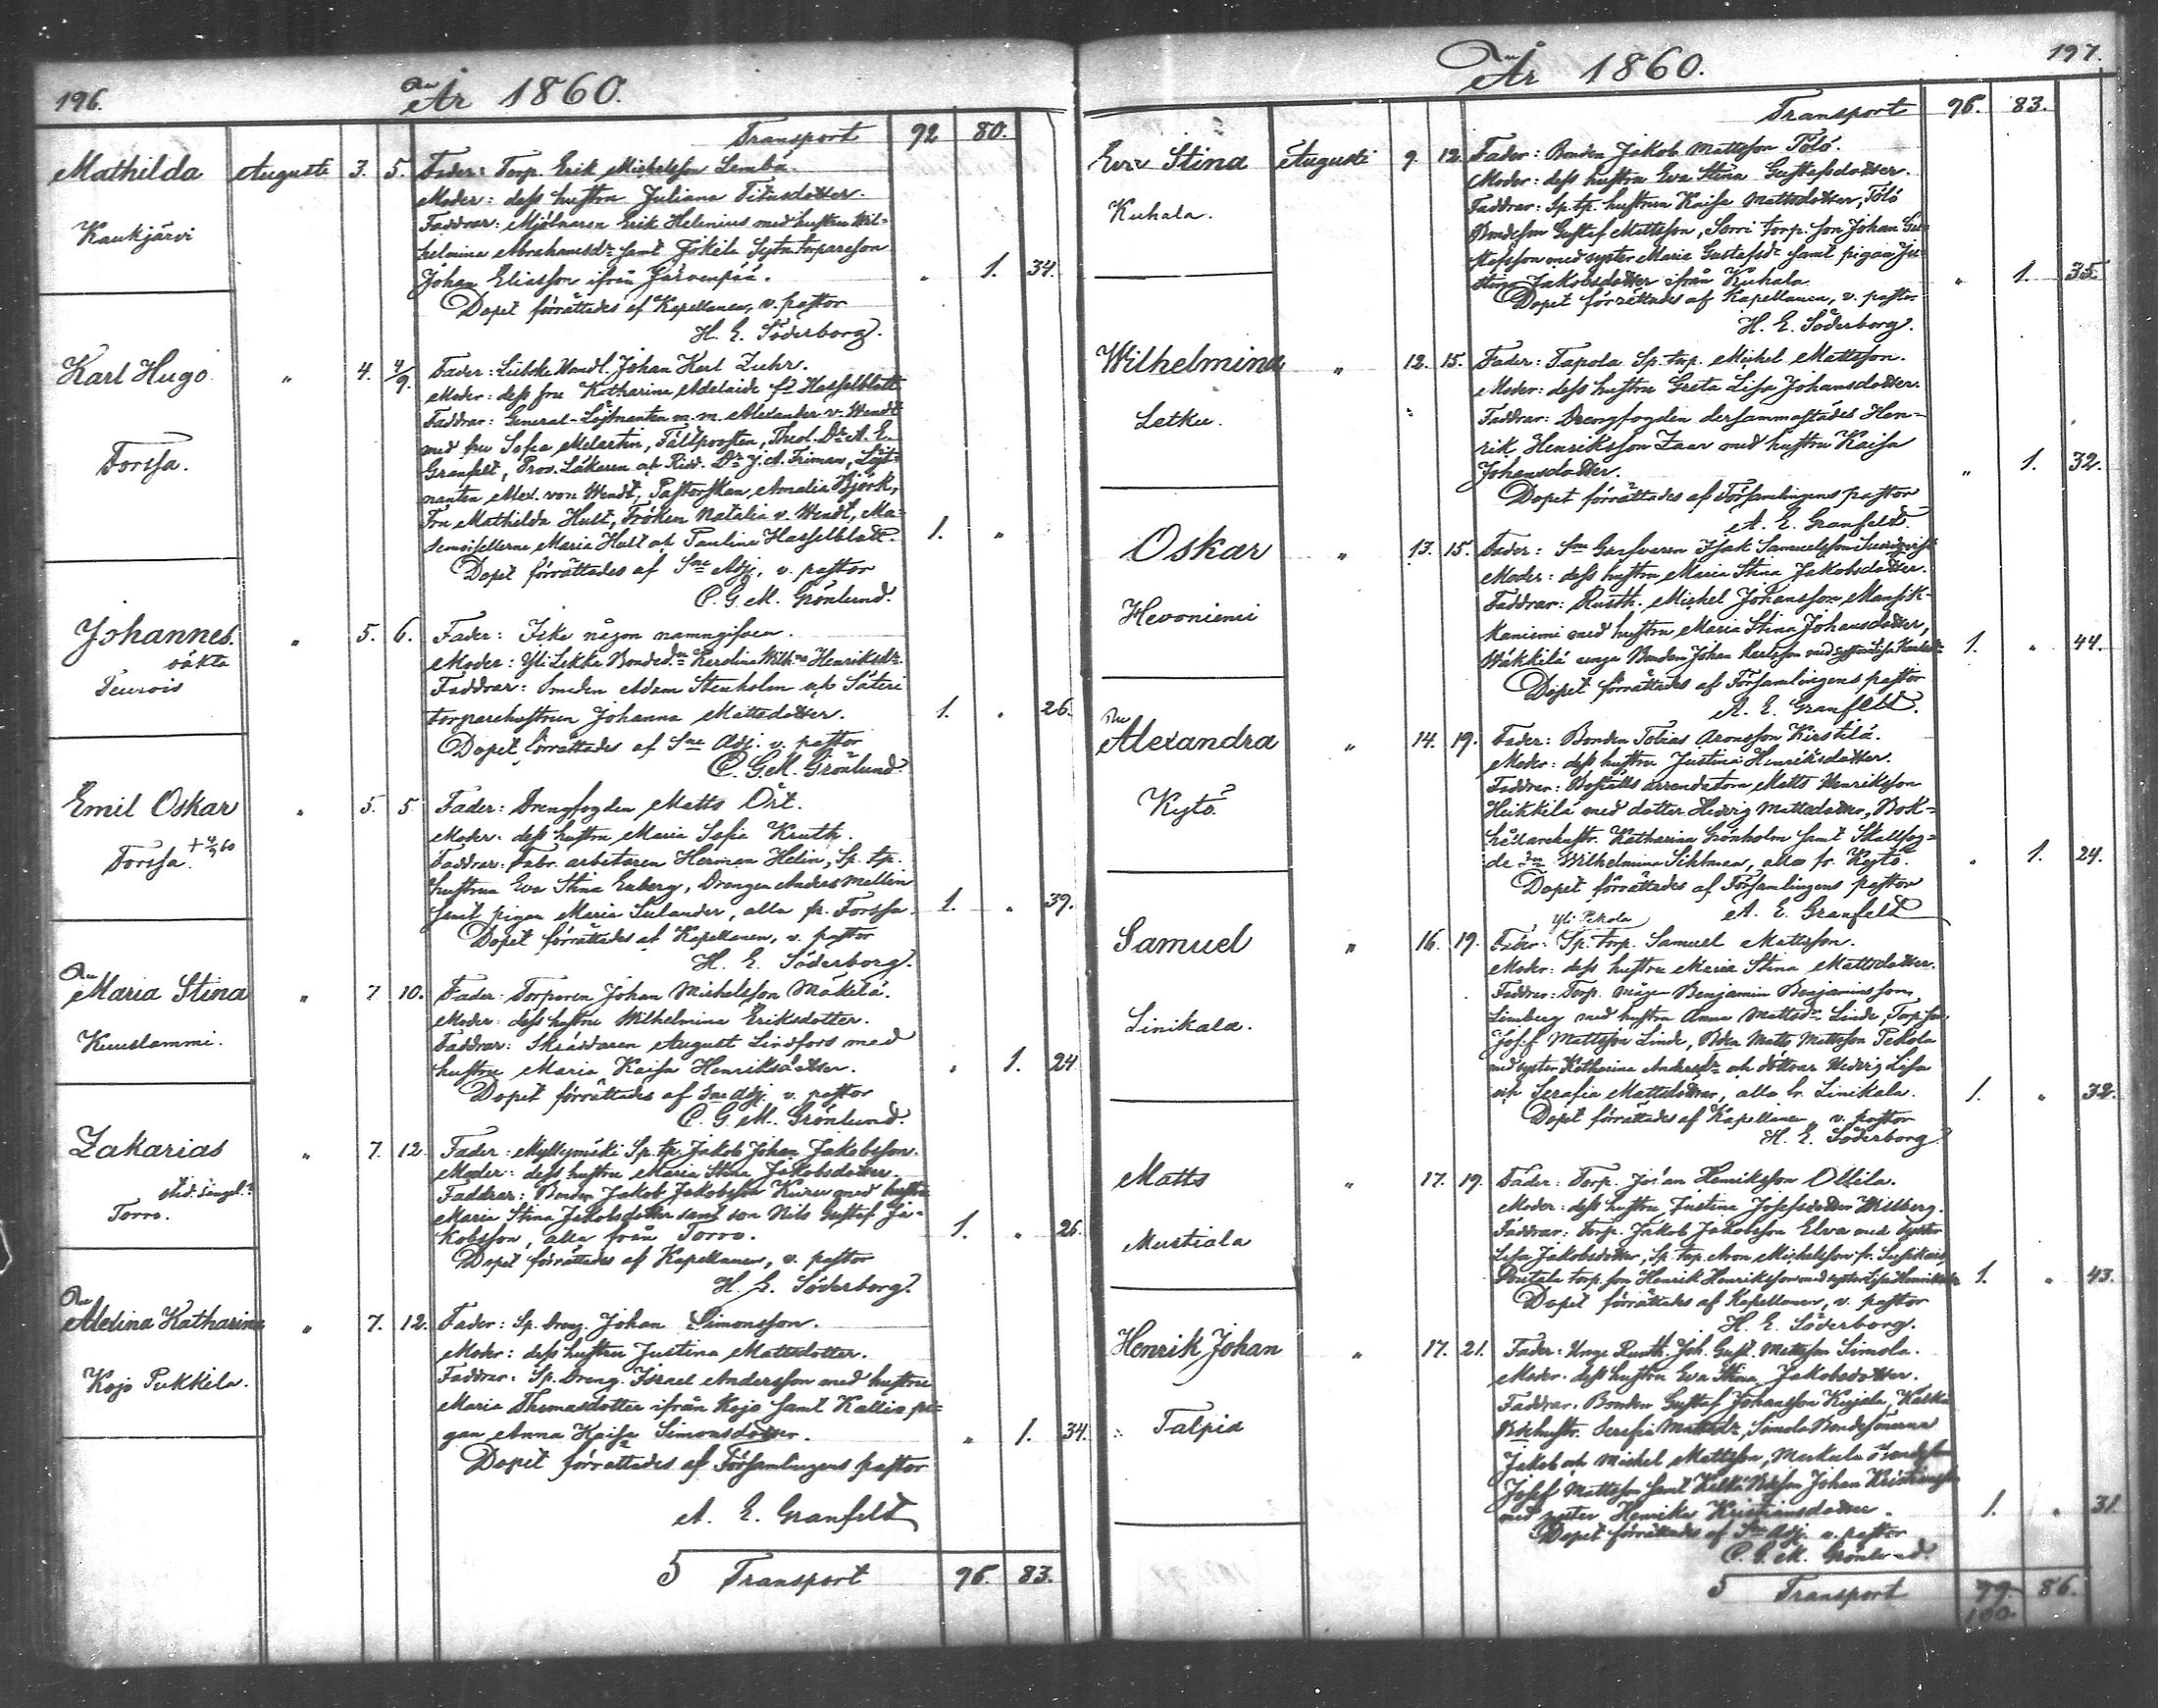 196.
År 1860.
Transport 92 80.
Mathilda Augusti 3. 5. Fader: Torp. Erik Michelsson Lembä.
Moder: dess hustru Juliana Titusdotter.
Kaukjärvi
Faddrar: Mjölnaren Erik Helenius med hustru Wil-
helmina Abrahamsdr samt Jokila Sqtn torpareson
Johan Eliasson ifrån Järvenpää. " 1. 34.
Dopet förrättades af Kapellanen, v. pastor
H. E. Söderborg.
Karl Hugo " 4. 4/9. Fader: Johan Karl Zuhr.
Moder: dess fru Katharina Adelaide fd Hasselblatt
Faddrar: General-Löjtnanten m. m. Alexander v. Wendt
med fru Sofia Melartin, Fältprosten, Theol. Dr A. E.
Forssa.
Granfelt, Prov. Läkaren och Ridd. Dr J. A. Friman, Löjt-
nanten Alex. von Wendt, Pastorskan Amalia Björk,
Fru Mathilda Hult, Fröken Natalia v. Wendt, Ma-
demoisellerna Maria Hult och Paulina Hasselblatt. 1. "
Dopet förrättades af Sne Adj. v. pastor
C. G. M. Grönlund.
Johannes. " 5. 6. Fader: Icke någon namngifven.
oäkta
Moder: Yli Lekka Bonded. Karolina Wilh:na Henriksdr
Teurois
Faddrar: Smeden Adam Stenholm och Säteri
torparehustrun Johanna Mattsdotter. 1. " 26.
Dopet förrättades af Sne Adj. v. pastor
C. G. M. Grönlund.
Emil Oskar " 5. 5 Fader: Drengfogden Matts Ört.
Moder: dess hustru Maria Sofia Kruth.
Forssa. + 4/9 60
Faddrar: Fabr. arbetaren Herman Helin, Sp. tp.
hustrun Eva Stina Enberg, Drengen Anders Mellin
samt pigan Maria Sulander, alla fr. Forssa. 1. " 39.
Dopet förrättades af Kapellanen, v. pastor
H. E. Söderborg.
Maria Stina " 7 10. Fader: Torparen Johan Michelsson Mäkelä.
Moder: dess hustru Wilhelmina Eriksdotter.
Kuuslammi.
Faddrar: Skräddaren August Lindfors med
hustru Maria Kaisa Henriksdotter. " 1. 24
Dopet förrättades af Sne Adj. v. pastor
C. G. M. Grönlund.
Zakarias " 7. 12. Fader: Myllymäki Sp. tp. Jakob Johan Jakobsson.
Moder: dess hustru Maria Stina Jakobsdotter.
Torro.
Faddrar: Bonden Jakob Jakobsson Kuru med hustru
Maria Stina Jakobsdotter samt son Nils Gustaf Ja-
kobsson, alla från Torro. 1. " 26.
Dopet förrättades af Kapellanen, v. pastor
H. E. Söderborg.
Alexina Katharina " 7. 12. Fader: Sp. dreng. Johan Simonsson.
Moder: dess hustru Justina Mattsdotter.
Kojo Pukkila.
Faddrar: Sp. Dreng. Israel Andersson med hustru
Maria Thomasdotter ifrån Kojo samt Kallio pi-
gan Anna Kaisa Simonsdotter. " 1. 34.
Dopet förrättades af Församlingens pastor
A. E. Granfelt
5 Transport 96. 83.
197.
År 1860.
Transport 96. 83.
Eva Stina Augusti 9. 12. Fader: Bonden Jakob Mattsson Tölö.
Moder: dess hustru Eva Stina Gustafsdotter.
Kuhala.
Faddrar: Sp. tp. hustrun Kaisa Mattsdotter, Tölö
Bondeson Gustaf Mattsson, Sorri torp. son Johan Gu-
stafsson med syster Maria Gustafsdr samt pigan Ju-
stina Jakobsdotter ifrån Kuhala. " 1. 35.
Dopet förrättades af Kapellanen, v. pastor
H. E. Söderborg.
Wilhelmina " 12. 15. Fader: Tapola Sp. torp. Michel Mattsson.
Moder: dess hustru Greta Lisa Johansdotter.
Letku.
Faddrar: Drengfogden dersammastädes Hen-
rik Henriksson Zaar med hustru Kaisa
Johansdotter. " 1. 32.
Dopet förrättades af Församlingens pastor
A. E. Granfelt.
Oskar " 13. 15. Fader: Isak Samuelsson
Moder: dess hustru Maria Stina Jakobsdotter.
Hevoniemi
Faddrar: Rusth. Michel Johansson Mansik-
kaniemi med hustru Maria Stina Johansdotter,
Wäkkilä unga Bonden Johan Karlsson med 1. " 44.
Dopet förrättades af Församlingens pastor
A. E. Granfelt.
Alexandra " 14. 19. Fader: Bonden Tobias Aronsson Kirstilä.
Moder: dess hustru Justina Henriksdotter.
Kyrö.
Faddrar: Boställs arrendatorn Matts Henriksson
Heikkilä med dotter Hedvig Mattsdotter, Bok-
hållarehustr. Katharina Grönholm samt Skallfog-
de Wilhelmina, alla fr. Kyrö. " 1. 24.
Dopet förrättades af Församlingens pastor
A. E. Granfelt
Yli Pekola
Samuel " 16. 19. Fader: Sp. torp. Samuel Mattsson.
Moder: dess hustru Maria Stina Mattsdotter.
Linikala.
Faddrar: Torp. mågen Benjamin Benjaminsson
Limberg med hustru Anna Mattsdr Linde, Torp. son
Josef Mattsson Linde, Matts Mattsson Pekola
med syster Katharina Andersdr och döttrar Hedvig Lisa
och Serafia Mattsdöttrar, alla fr. Linikala. 1. " 32.
Dopet förrättades af Kapellanen, v. pastor
H. E. Söderborg
Matts " 17. 19. Fader: Torp. Johan Henriksson Ollila.
Moder: dess hustru Justina Josefsdotter Wilberg.
Mustiala
Faddrar: torp. Jakob Jakobsson Elva med syster
Lisa Jakobsdotter, Sp. torp. Aron Michelsson fr.
Poutala torp. son Henrik Henriksson med syster Lisa 1. " 43.
Dopet förrättades af Kapellanen, v. pastor
H. E. Söderborg.
Henrik Johan " 17. 21. Fader: Unge Rusth. Joh. Gust. Mattsson Simola.
Moder: dess hustru Eva Stina Jakobsdotter.
Talpia
Faddrar: Bonden Gustaf Johansson
hustr. Serafia Mattsdr, Simola Bondesönerna
Jakob och Michel Mattsson,
Josef Mattsson samt Johan
med syster Henrika Kristiansdotter. 1. " 31.
Dopet förrättades af Sne Adj. v. pastor
C. G. M. Grönlund.
5 Transport 99. 86.
100.